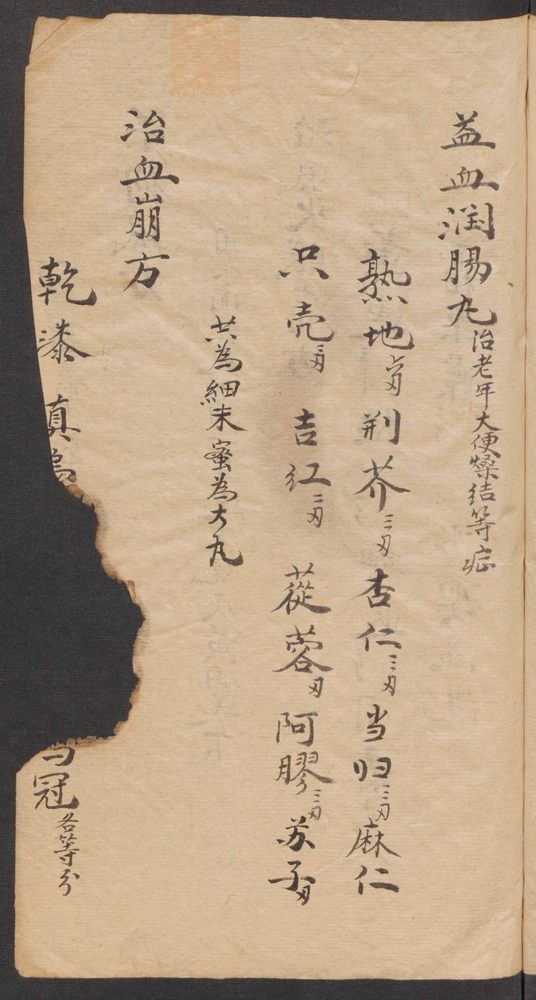 益血润腸丸治老年大便燥结等症
熟地 荆芥三刄杏仁三刄当归三刄麻仁
只壳 吉红二刄蓯蓉刄阿膠三刄苏子刄
共為細末蜜為大丸
治血崩方
乾漆真
冠各等分